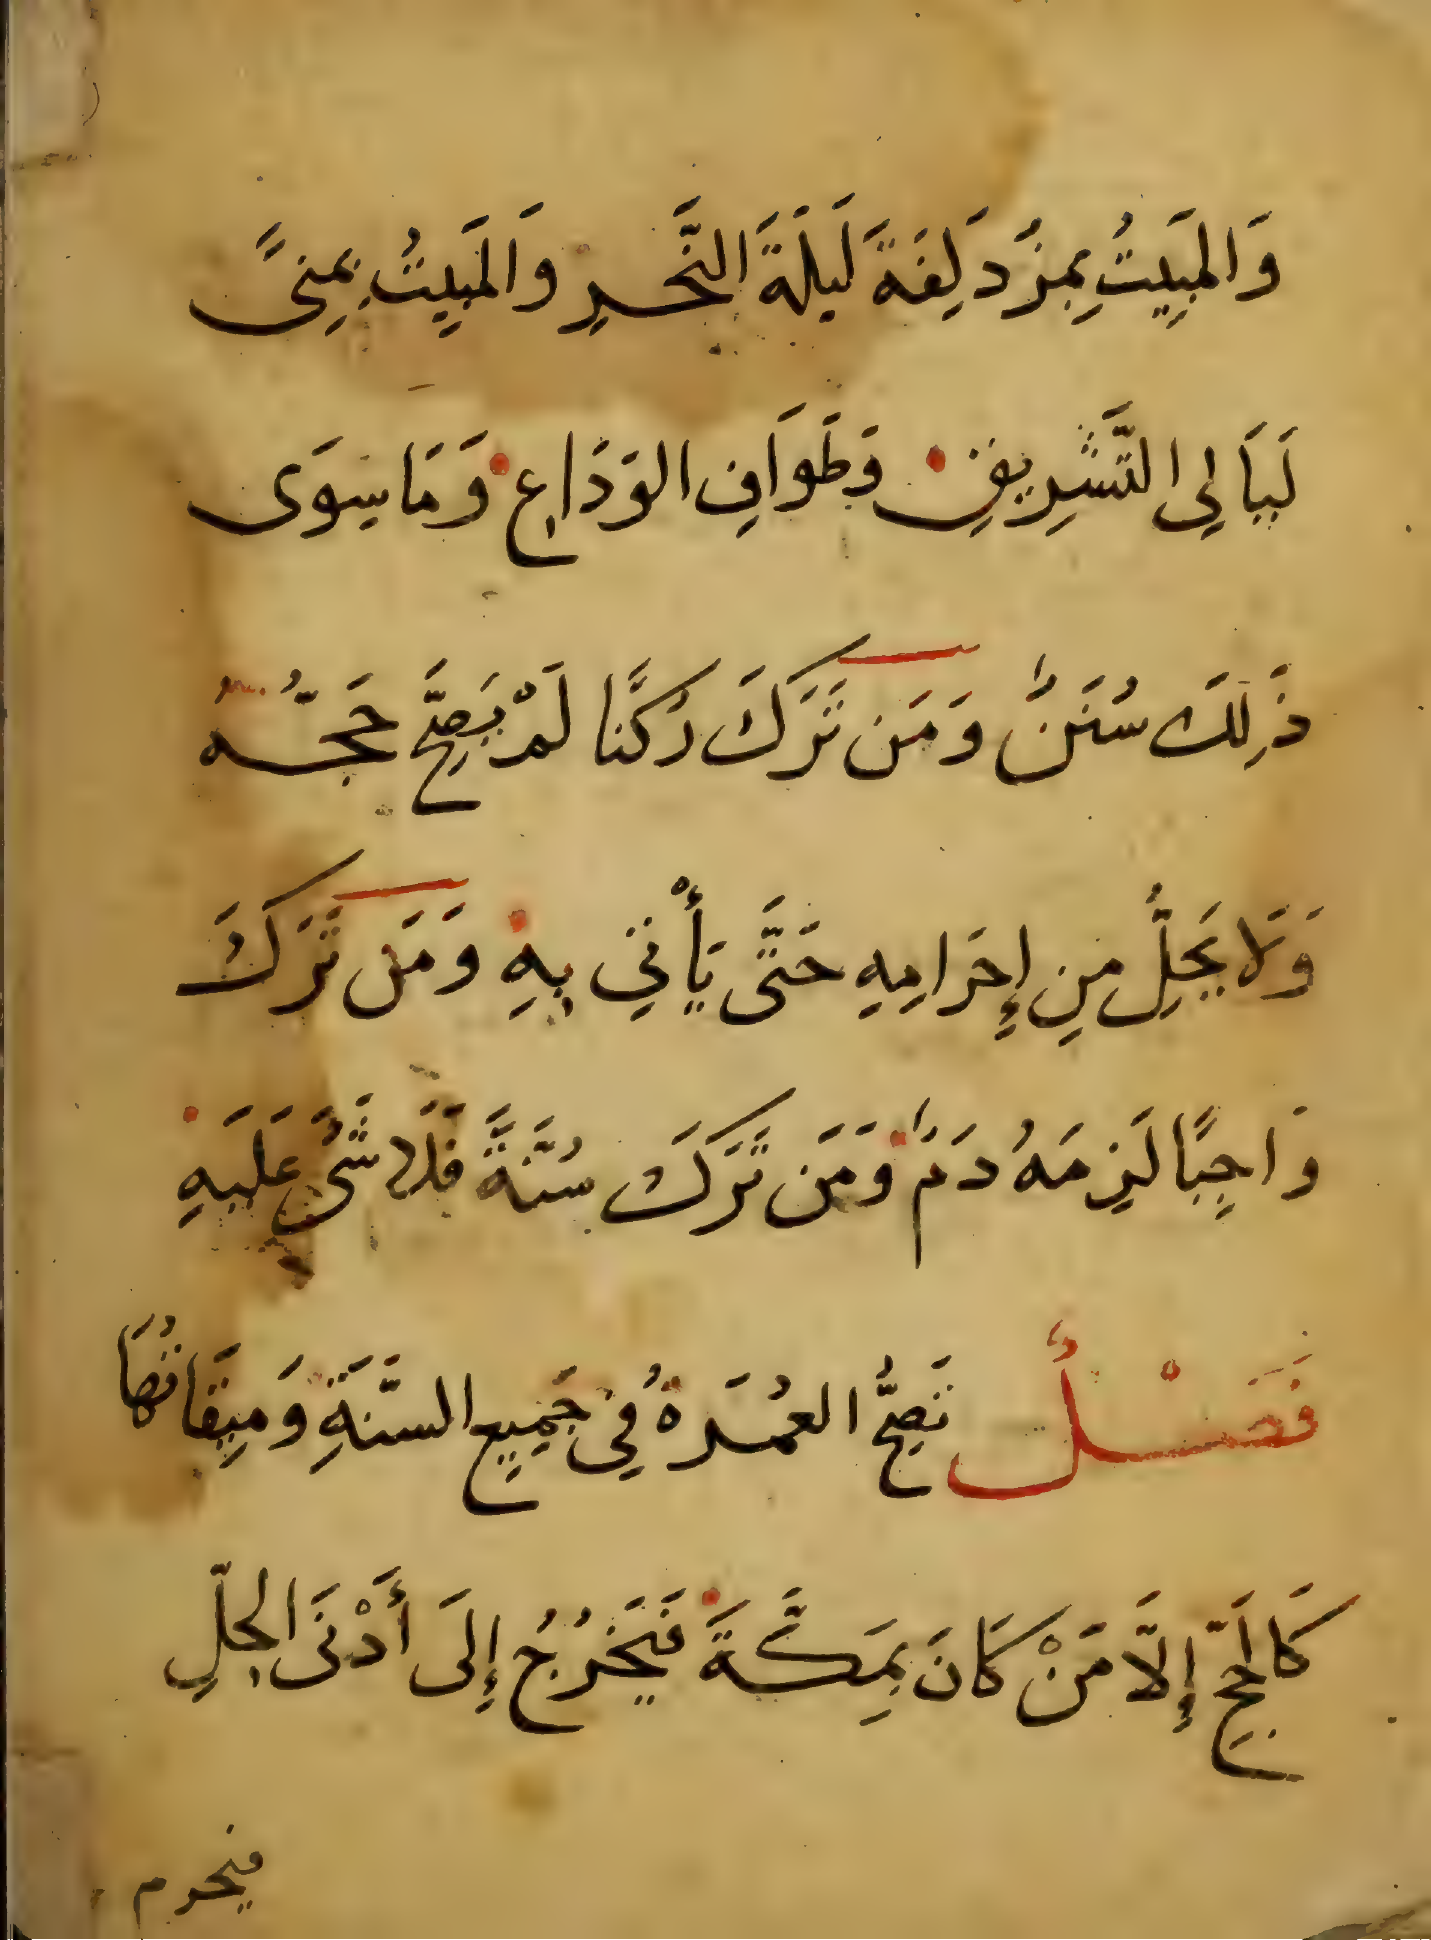 وَالمَبِيتُ بِمُزْدَلِفَةَ لَيلَةَ النَّحرِ وَالمَبِيتُ بِمِنىً
لَيَالِى التَّشرِيقِ وَطَوَافِ الوَدَاعِ وَمَا سِوَى
ذَلِكَ سُنَنٌ وَمَن تَرَكَ رُكنًا لَمْ يَصِحَّ حَجُّهُ
وَلَا يَحِلُّ مِن إِحرَامِهِ حَتَّى يَأْتِيَ بِهِ وَمَن تَرَكَ
وَاجِبًا لَزِمَهُ دَمٌ وَمَن تَرَكَ سُنَّةً فَلَا شَىْءَ عَلَيهِ
فَصْلٌ تَصِحُّ العُمرَةُ فِي جَمِيعِ السَّنَةِ وَمِيقَاتُهَا
كَالحَجِّ إِلَّا مَنْ كَانَ بِمَكَّةَ فَيَخرُجُ إِلَى أَدْنَى الحِلِّ
فيحرم